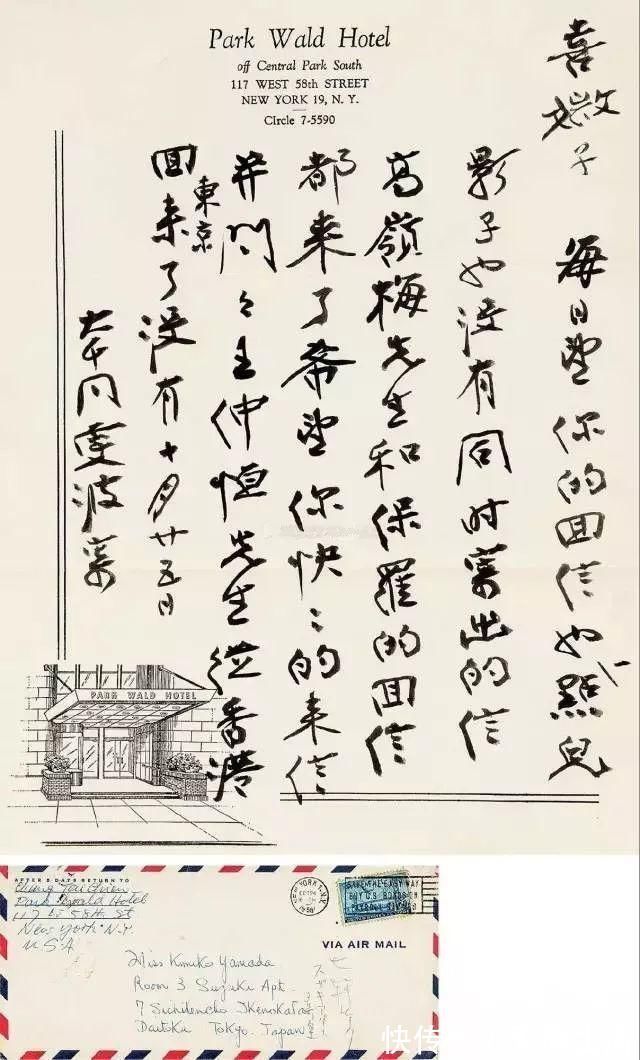 Park Wald Hotel
off Central Park South
117 WEST 58th STREET
NEW YORK 19, N. Y.
CIrcle 7-5590
喜媺子 每日望你的回信也一點兒
影子也沒有同时寄出的信
高嶺梅先生和保羅的回信
都来了希望你快〻的来信
并问〻王仲恒先生從香港
回来了沒有十月廿五日
東京
大千同雯波寄
PARK WALD HOTEL
AFTER 5 DAYS RETURN TO
Chang Tai Chien
Park Wald Hotel
117 W 58th St
New York N.Y.
U S A
NEW YORK, N.Y.
1958
SAVE THE EASY WAY
BUY U.S. BONDS ON
PAYROLL SAVINGS
VIA AIR MAIL
Miss Kimiko Yamada
Room 3 Suzuki Apt.
7 Shichikencho Ikenohata
Daitoku Tokyo. Japan
快传